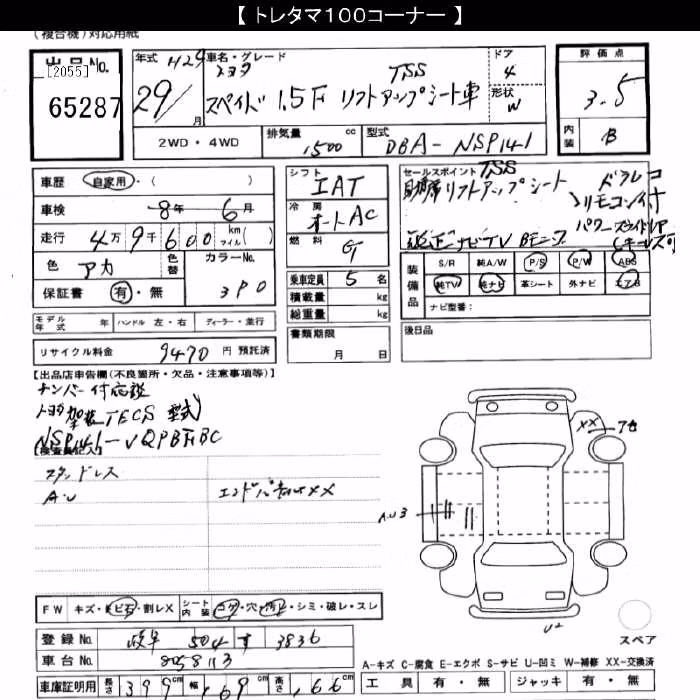 【 トレタマ100コーナー 】
(複合機)対応用紙
出品No.
[2055]
65287
年式 H29
29/ 月
車名・グレード
トヨタ TSS
スペイド 1.5F リフトアップシート車
ドア 4
形状 W
評価点
3.5
内装 B
2WD・4WD
排気量 1500 cc
型式 DBA-NSP141
車歴 自家用・( )
車検 8年 6月
走行 4万9千600 km マイル( )
色 アカ 色替
カラーNo. 3P0
保証書 有・無
シフト IAT
冷房 オートAC
燃料 G
乗車定員 5 名
積載量 kg
総重量 kg
書類期限
月 日
セールスポイント TSS
助手席リフトアップシート ドラレコ
リモコン付
純正ナビTV Bモニタ パワースライドドア
装備品
S/R 純A/W P/S P/W ABS
純TV 純ナビ 革シート 外ナビ エアB
ナビ型番:
後日品
モデル年式 年 ハンドル 左・右 ディーラー・並行
リサイクル料金 9470 円 預託済
【出品店申告欄(不良箇所・欠品・注意事項等)】
ナンバー付応談
トヨタ架装TECS 型式
NSP141-
【検査員記入】
スタッドレス
A・U
XX
AU3
XX
U2
スペア
FW キズ・ビ石・割レX
シート内装 コゲ・穴・汚レ・シミ・破レ・スレ
登録No. 岐阜 504 す 3836
車台No. 8058113
車庫証明用 長さ 399cm 幅 169cm 高さ 166cm
A-キズ C-腐食 E-エクボ S-サビ U-凹ミ W-補修 XX-交換済
工具 有・無 ジャッキ 有・無